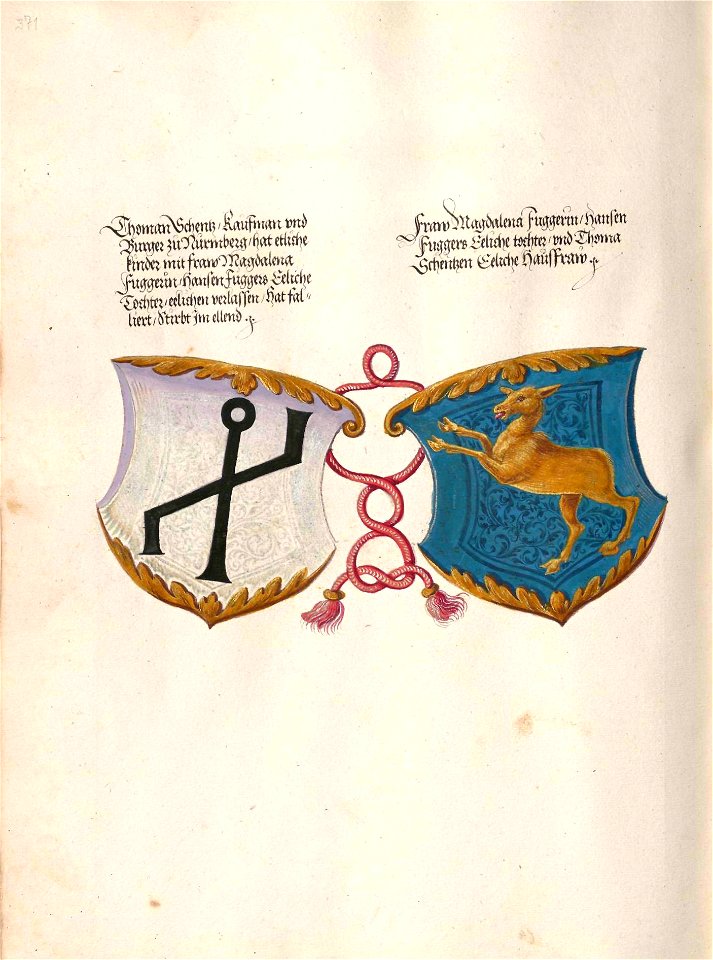 371
Thoman Schentz / Kaufman vnd
Burger zu Nürmberg / hat etliche
kinder mit fraw Magdalena
Fuggerin / Hansen Fuggers Eeliche
Tochter / eelichen verlassen / Hat fal-
liert / Stirbt Jm ellend.
Fraw Magdalena Fuggerin / Hansen
Fuggers Eeliche tochter / vnd Thoma
Schentzen Eeliche Haussfraw.